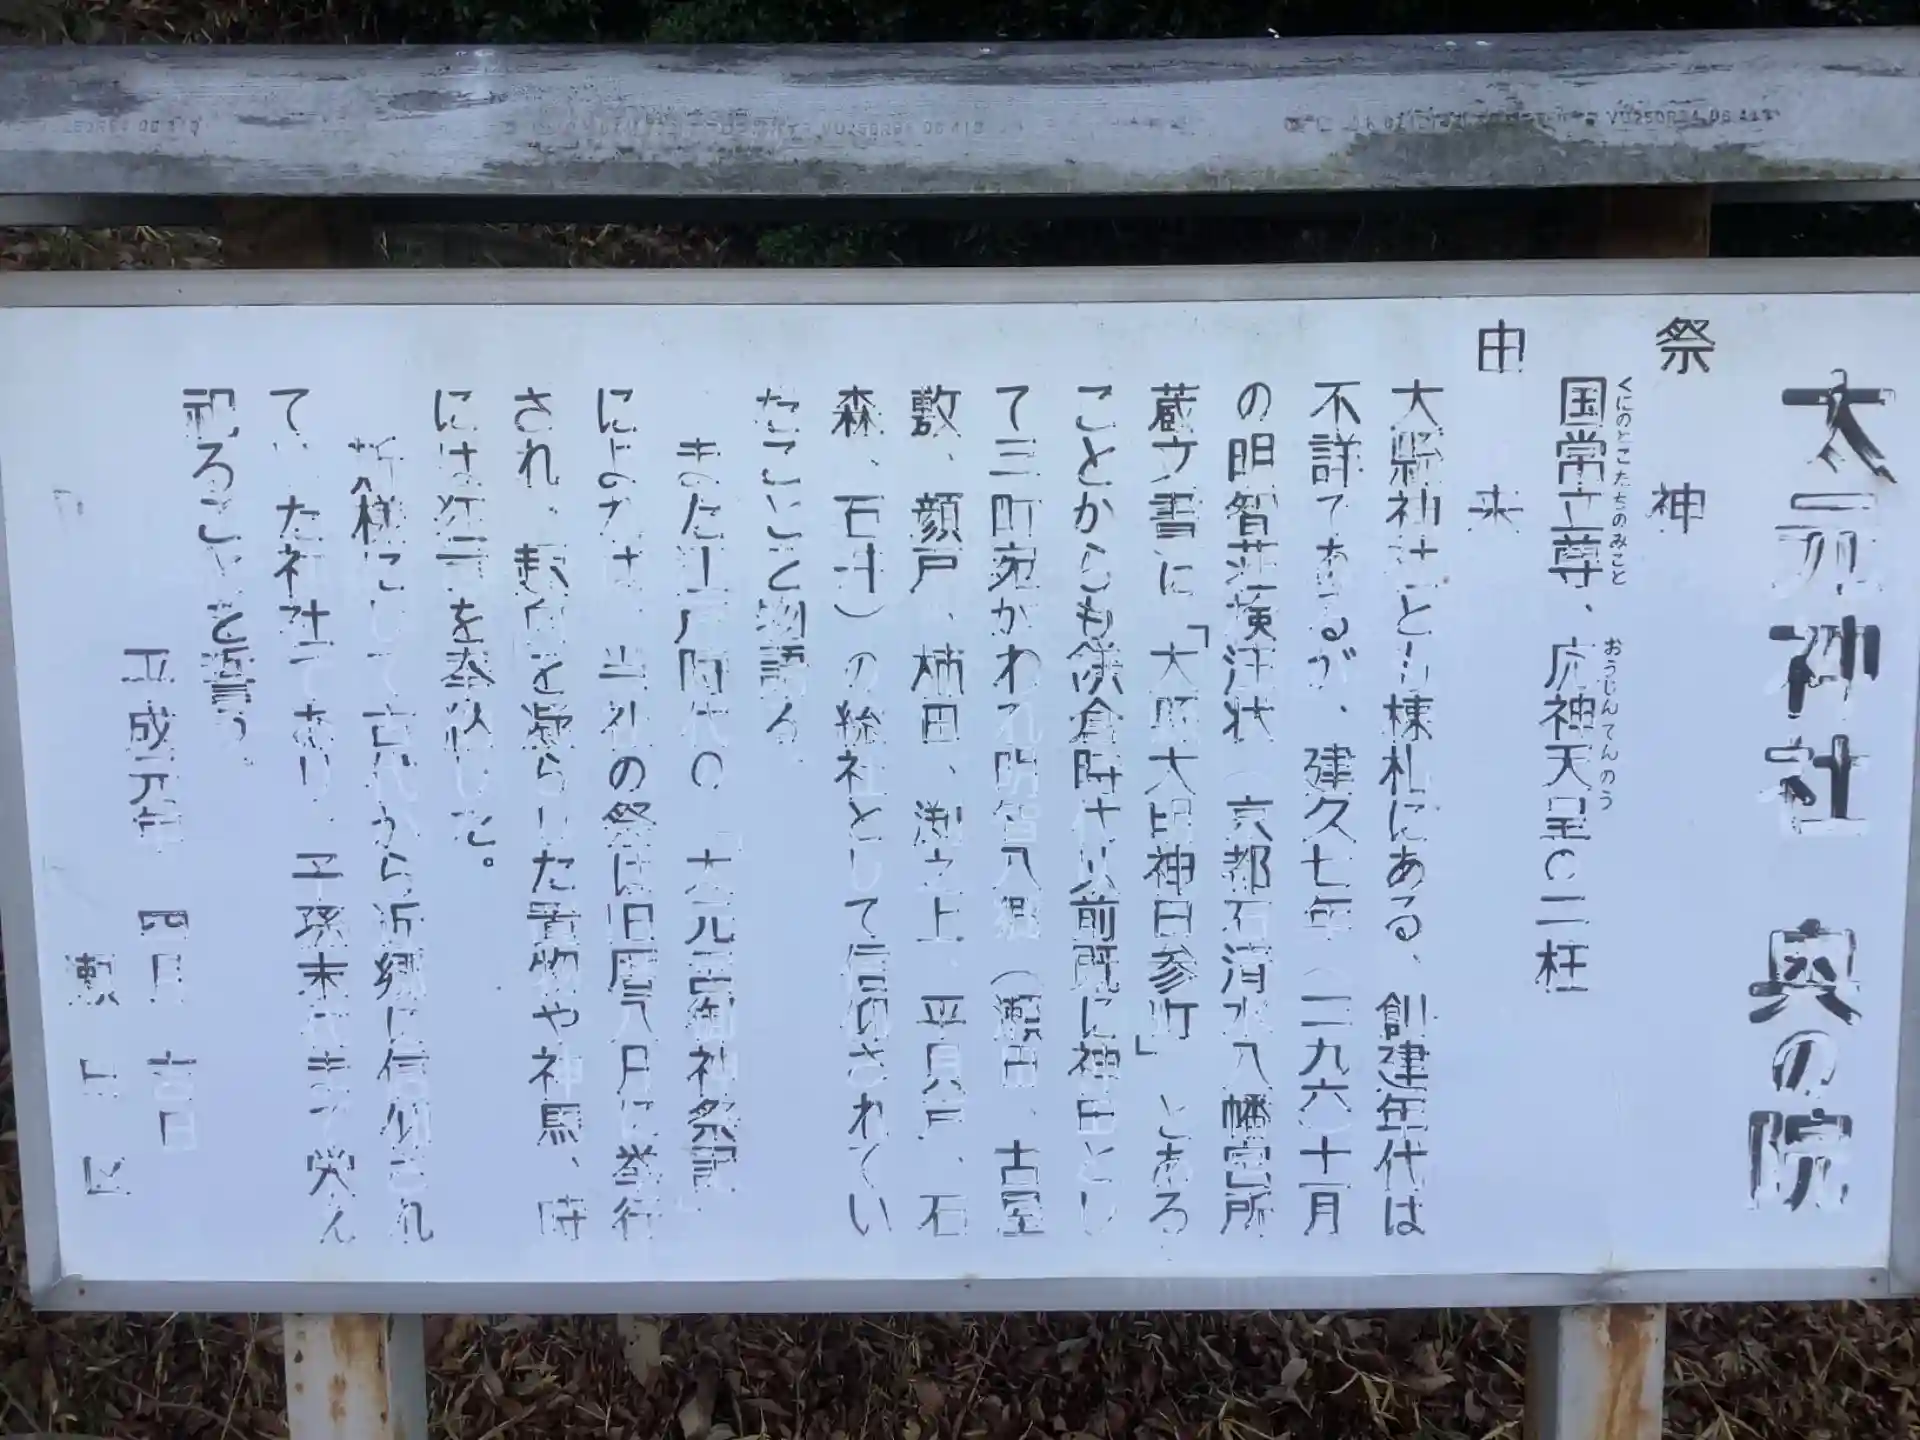 太元神社 奥の院
祭神
国常立尊、応神天皇の二柱
くにのとこたちのみこと
おうじんてんのう
由来
大縣神社とも棟札にある、創建年代は
不詳であるが、建久七年(一一九六)十一月
の明智荘検注状(京都石清水八幡宮所
蔵文書に「大縣大明神田参町」とある
ことからも鎌倉時代以前既に神田とし
て三町宛かわれ明智八郷(瀬田、古屋
敷、顔戸、柿田、渕之上、平貝戸、石
森、石井)の総社として信仰されてい
たことを物語る。
また江戸時代の「太元宮御神祭記
によれば、当社の祭は旧暦八月に挙行
され、趣向を凝らした置物や神馬、時
には狂言を奉納した。
斯様にして古代から近郷に信仰され
ていた社社であり、子孫末代まで栄え
祀ることを誓う。
平成元年 四月 吉日
瀬田区
VU250R94 06 413